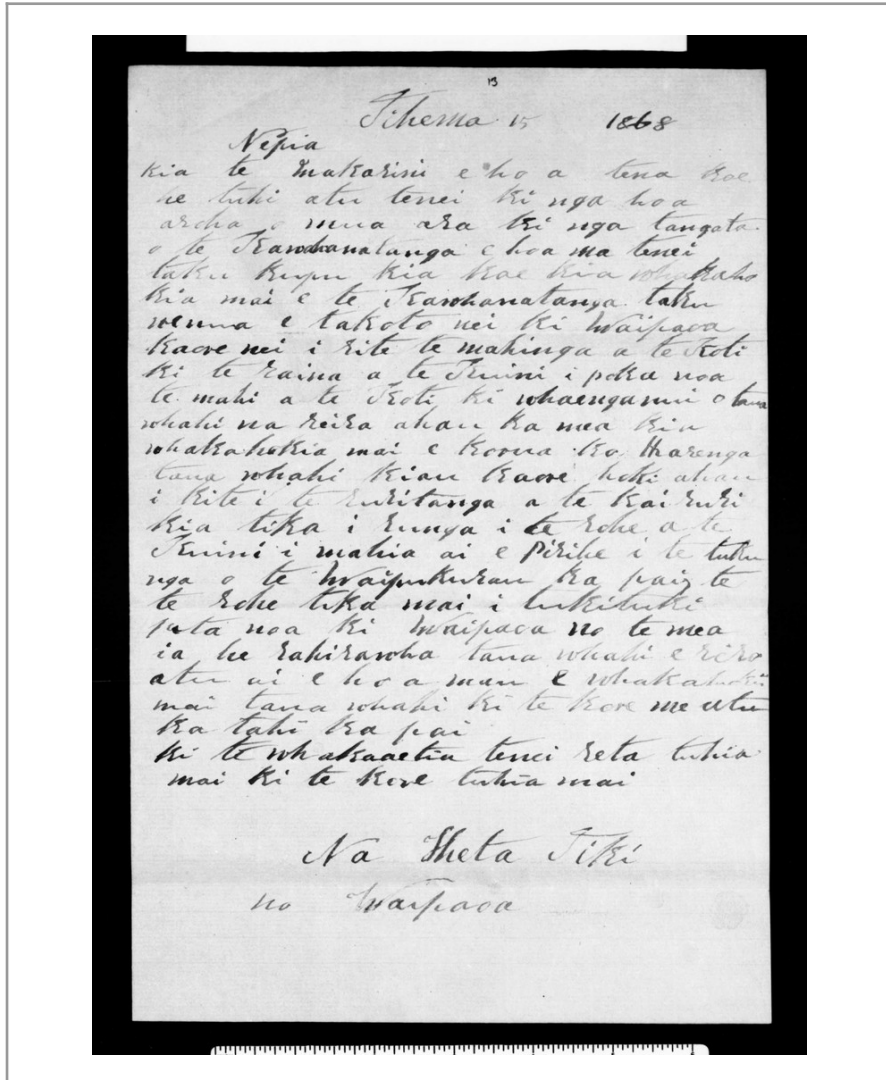 13
Tihema 15 1868
Nepia
kia te Makarini e ho a tena koe
he tuhi atu tenei ki nga hoa
aroha o mua ara ki nga tangata
o te Kawanatanga e hoa ma tenei
taku kupu kia koe kia whakaho
kia mai e te Kawhanatanga taku
wenua e takoto nei ki Waipaoa
kaore nei i rite te mahinga a te Koti
ki te raina a te Kuini i poka noa
te mahi a te Koti ki whaenganui o tana
whahi na reira ahau ka mea kia
whakahokia mai e korua ko
tana whahi kiau kaore hoki ahau
i kite i te ruritanga a te kai ruri
kia tika i runga i te rohe a te
Kuini i mahia ai e Pirihe i te tuku
nga o te Waipukurau ka pai te
te rohe tika mai i tukituki
puta noa ki Waipaoa no te mea
ia he rahirawha tana whahi e riro
atu ai e ho a mau e whakahokii
mai tana whahi ki te kore me utu
ka tahi ka pai
ki te whakaaetia tenei reta tuhia
mai ki te kore tuhia mai
Na Heta Tiki
no Waipaoa